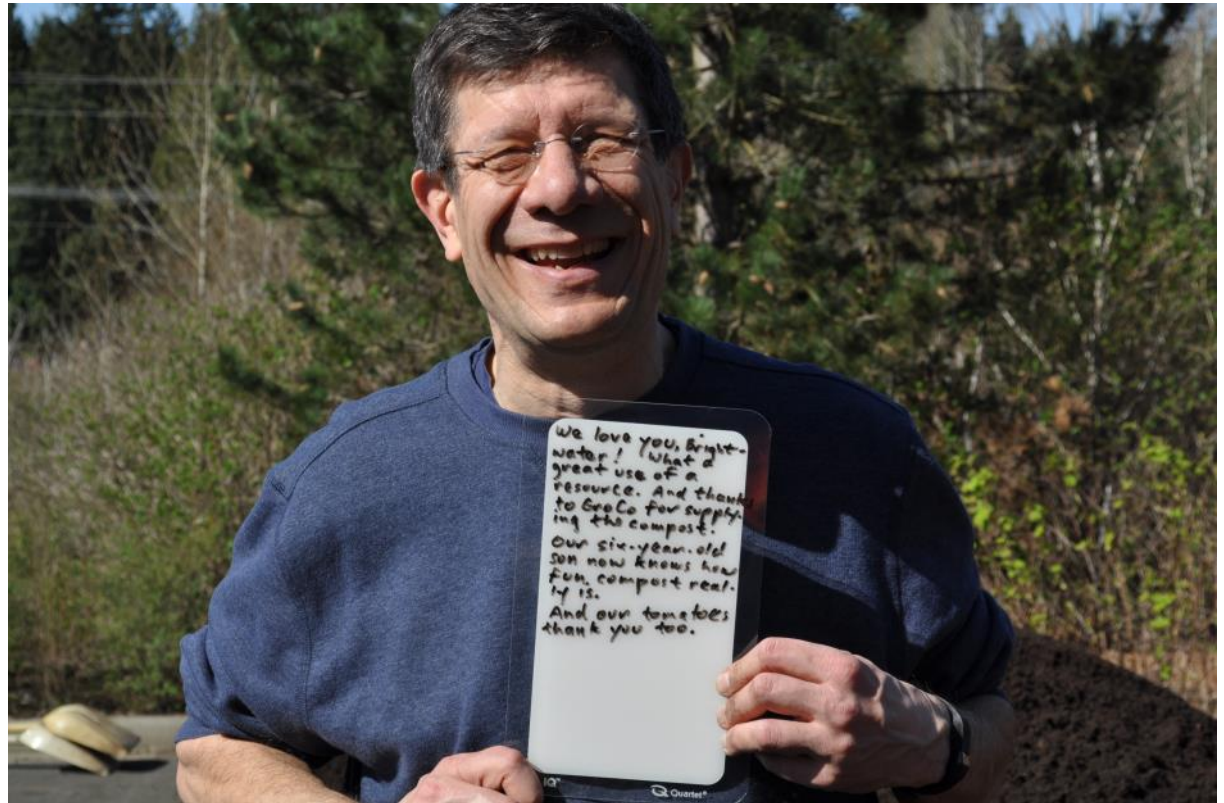 We love you, Bright-
water! What a
great use of a
resource. And thanks
to GroCo for supply-
ing the compost.
Our six-year-old
son now knows how
fun compost real-
ly is.
And our tomatoes
thank you too.
IQ™
Quartet®